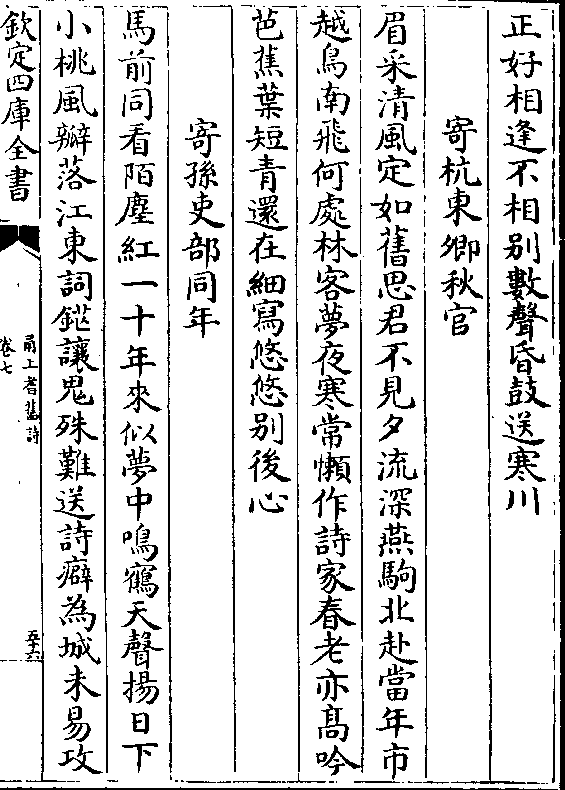 正好相逢不相别數聲昏鼓送寒川
寄杭東卿秋官
眉采清風定如舊思君不見夕流深燕駒北赴當年市
越鳥南飛何處林客夢夜寒常懶作詩家春老亦髙吟
芭蕉葉短青還在細寫悠悠别後心
寄孫吏部同年
馬前同看陌塵紅一十年來似夢中鳴鶴天聲揚日下
小桃風瓣落江東詞鋋讓鬼殊難送詩癖為城未易攻
欽定四庫全書
甬上耆舊詩
卷七
五十六